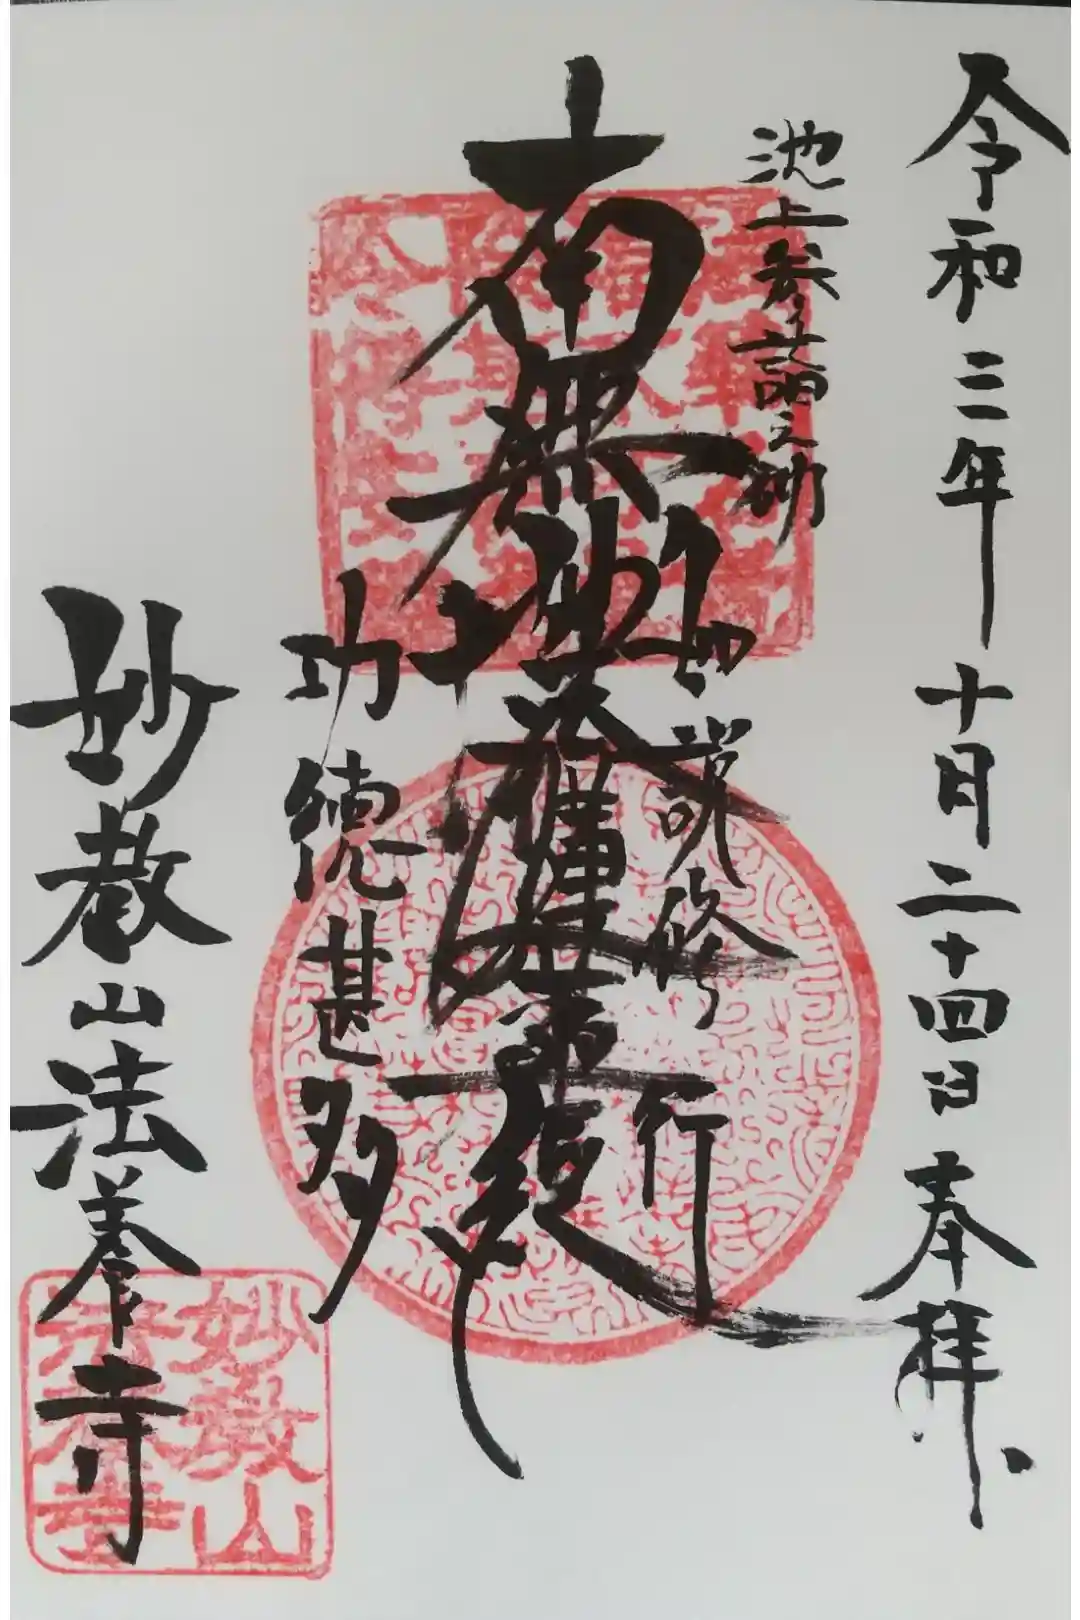 令和三年 十月二十四日 奉拝
池上参詣之砌
南無妙法蓮華経
如説修行
功徳甚多
妙教山法養寺
妙教山
法養寺